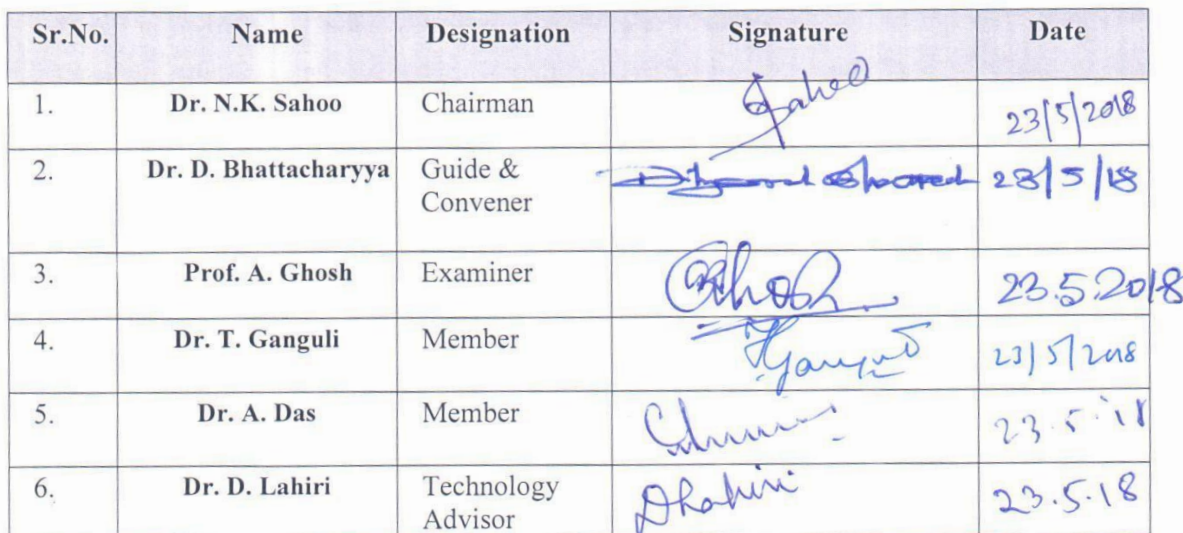 Sr.No. Name Designation Signature Date
1. Dr. N.K. Sahoo Chairman Sahoo 23/5/2018
2. Dr. D. Bhattacharyya Guide & 23/5/18
Convener
3. Prof. A. Ghosh Examiner AGhosh 23.5.2018
4. Dr. T. Ganguli Member TGanguli 23/5/2018
5. Dr. A. Das Member 23.5.'18
6. Dr. D. Lahiri Technology DLahiri 23.5.18
Advisor